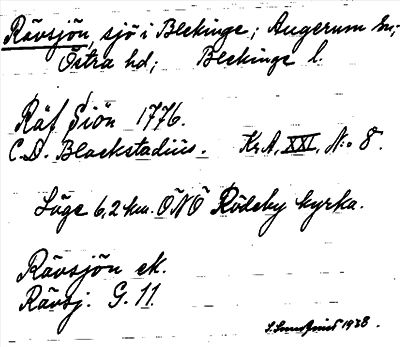 Rävsjön, sjö i Blekinge; Augerum sn;
Östra hd; Blekinge l.
Räf Siön 1776.
C.D. Blackstadius. Kr.A, XXI, N:o 8.
Läge 6,2 km. ÖNÖ Rödeby kyrka.
Rävsjön ek.
Rävsj. G. 11.
1938